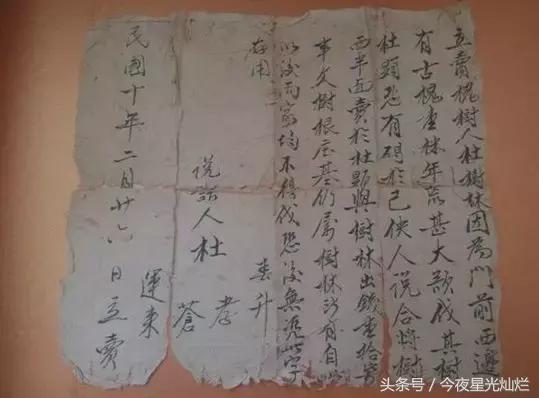 立賣槐樹人杜樹林因爲門前西邊
有古槐壹株年荒甚大欲伐其樹
杜顯恐有碍於己使人說合將樹
西半面賣於杜顯與樹林出錢壹拾
事文樹根庄基仍屬樹林所有自
以後兩家均不得伐恐後無憑此字
存用
春升
說合人杜孝
蒼
運來
民國十年二月廿六日立賣
头条号／今夜星光灿烂